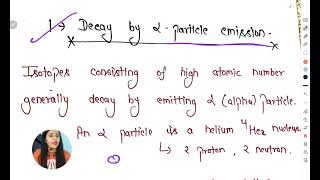 1→ Decay by α-particle emission.
Isotopes consisting of high atomic number
generally decay by emitting α (alpha) particle.
An α particle is a helium ⁴He₂ nucleus.
↳ 2 proton, 2 neutron.